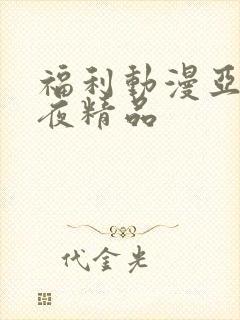 福利動漫亞
夜精品
代金光